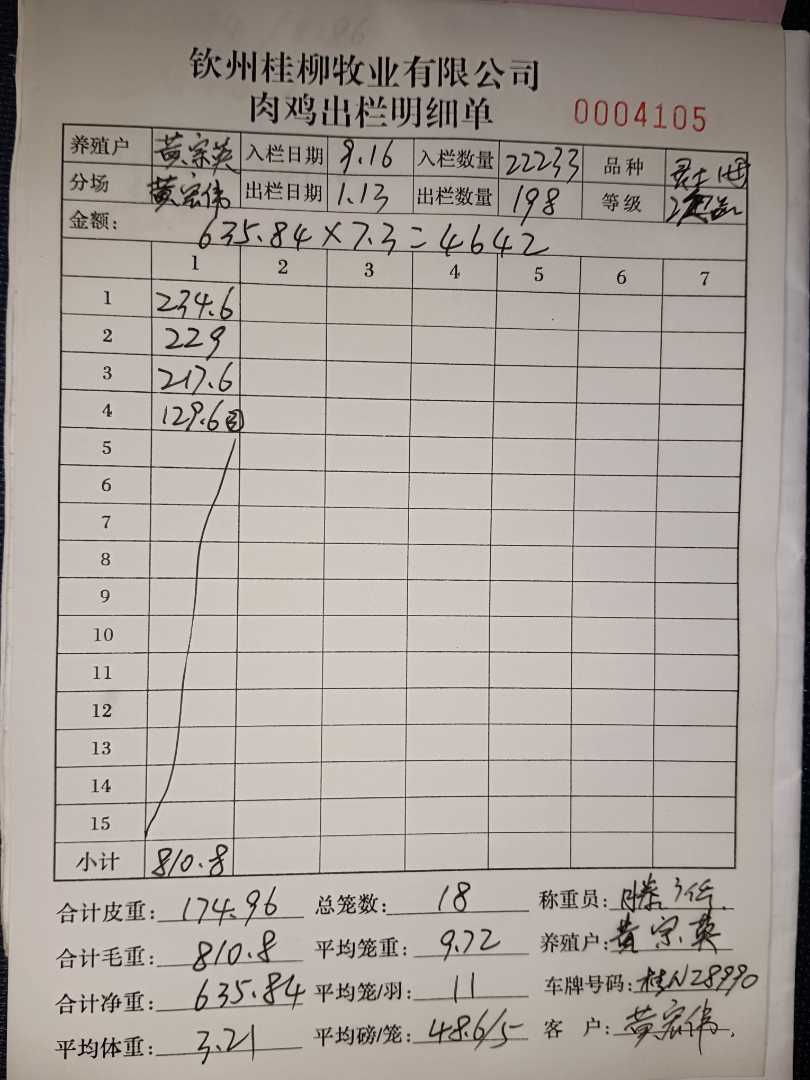 钦州桂柳牧业有限公司
肉鸡出栏明细单 0004105
养殖户 黄宗英 入栏日期 9.16 入栏数量 22233 品种
分场 黄宏伟 出栏日期 1.13 出栏数量 198 等级
金额: 635.84×7.3=4642
1 2 3 4 5 6 7
1 234.6
2 229
3 217.6
4 129.6③
5
6
7
8
9
10
11
12
13
14
15
小计 810.8
合计皮重: 174.96 总笼数: 18 称重员:
合计毛重: 810.8 平均笼重: 9.72 养殖户: 黄宗英
合计净重: 635.84 平均笼/羽: 11 车牌号码: 桂N28990
平均体重: 3.21 平均磅/笼: 48.6/5 客户: 黄宏伟